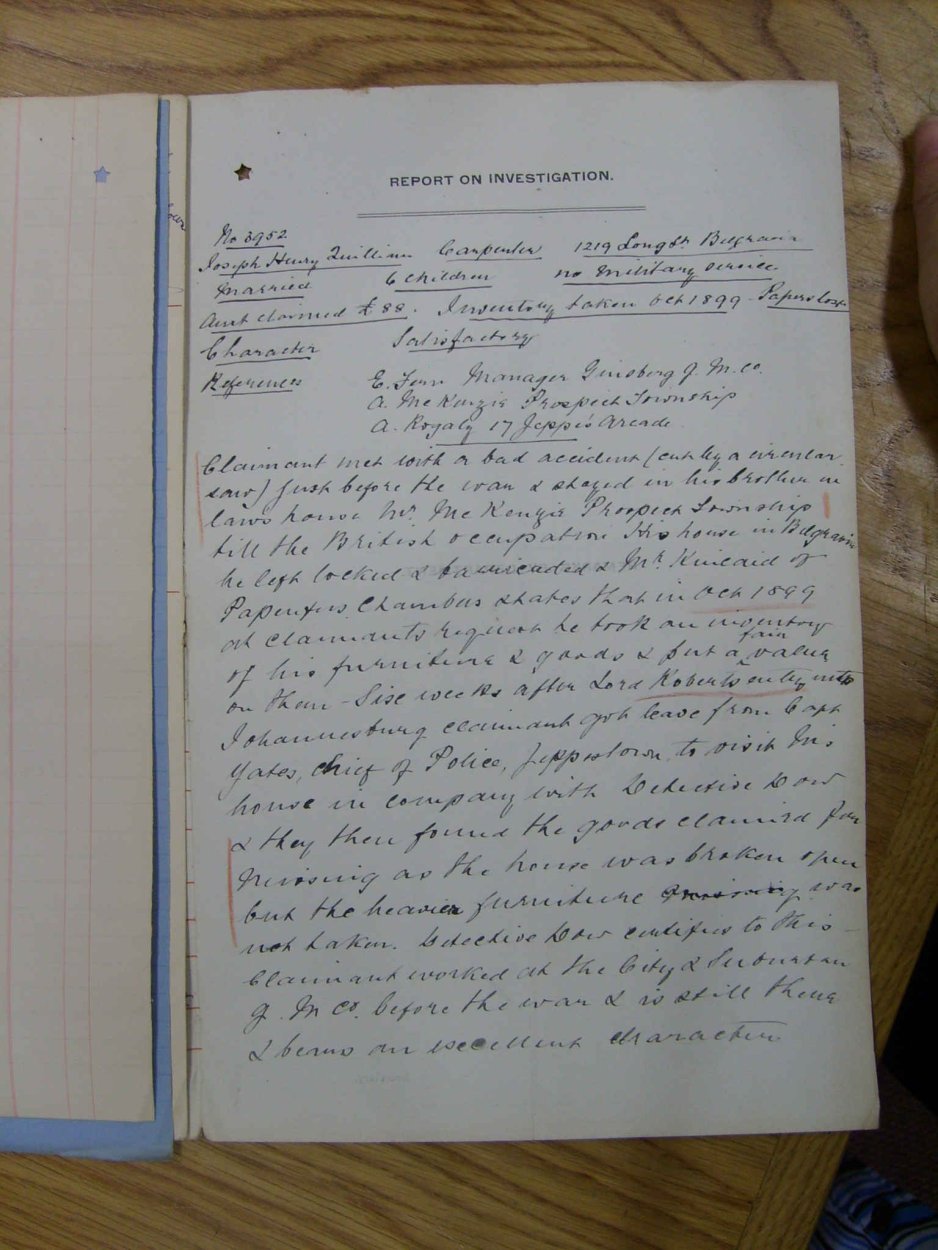 REPORT ON INVESTIGATION.
No 3952
Joseph Henry Quillian Carpenter 1219 Long St. Belgravia
Married 6 Children no military service
Amt claimed £88. Inventory taken Oct 1899 - Papers lost
Character Satisfactory
References E. Fern Manager Ginsberg G. M. Co.
A. McKenzie Prospect Township
A. Rogaly 17 Jeppe's Arcade
Claimant met with a bad accident (cut by a circular
saw) just before the war & stayed in his brother in
laws house Mr. McKenzie Prospect Township
till the British occupation His house in Belgravia
he left locked & barricaded & Mr Kincaid of
Papenfus Chambers states that in Oct 1899
at claimants request he took an inventory
of his furniture & goods & put a fair value
on them - Six weeks after Lord Roberts entry into
Johannesburg claimant got leave from Capt
Yates, chief of Police, Jeppestown, to visit his
house in company with Detective Dow
& they then found the goods claimed for
missing as the house was broken open
but the heavier furniture missing was
not taken. Detective Dow certifies to this -
Claimant worked at the City & Suburban
G. M Co. before the war & is still there
& bears an excellent character